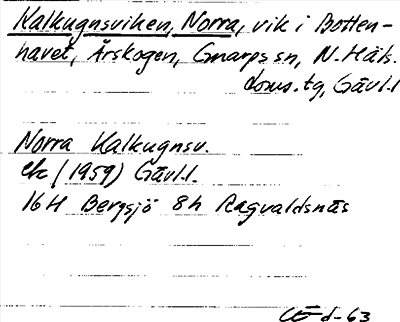 Kalkugnsviken, Norra, vik i Botten-
havet, Årskogen, Gnarps sn, N. Häls.
doms.tg, Gävl.l
Norra Kalkugnsv.
ek (1959) Gävl.l.
16H Bergsjö 8h Ragvaldsnäs
d-63